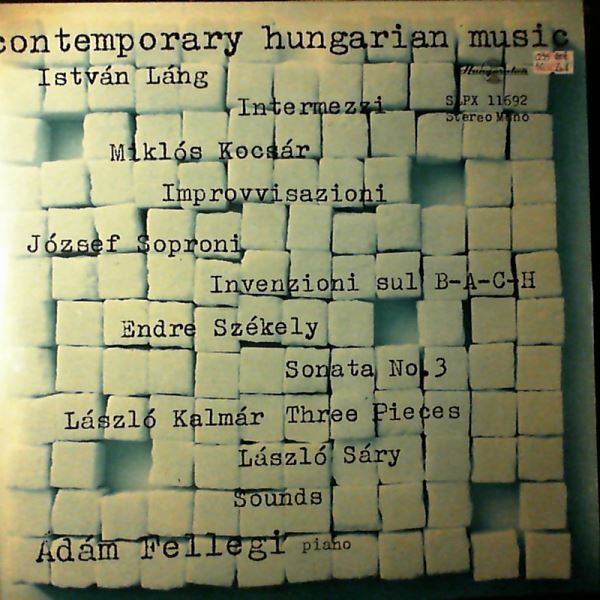 contemporary hungarian music
István Láng
Hungaroton
Intermezzi
SLPX 11692
Stereo Mono
Miklós Kocsár
Improvvisazioni
József Soproni
Invenzioni sul B-A-C-H
Endre Székely
Sonata No.3
László Kalmár Three Pieces
László Sáry
Sounds
Ádám Fellegi piano